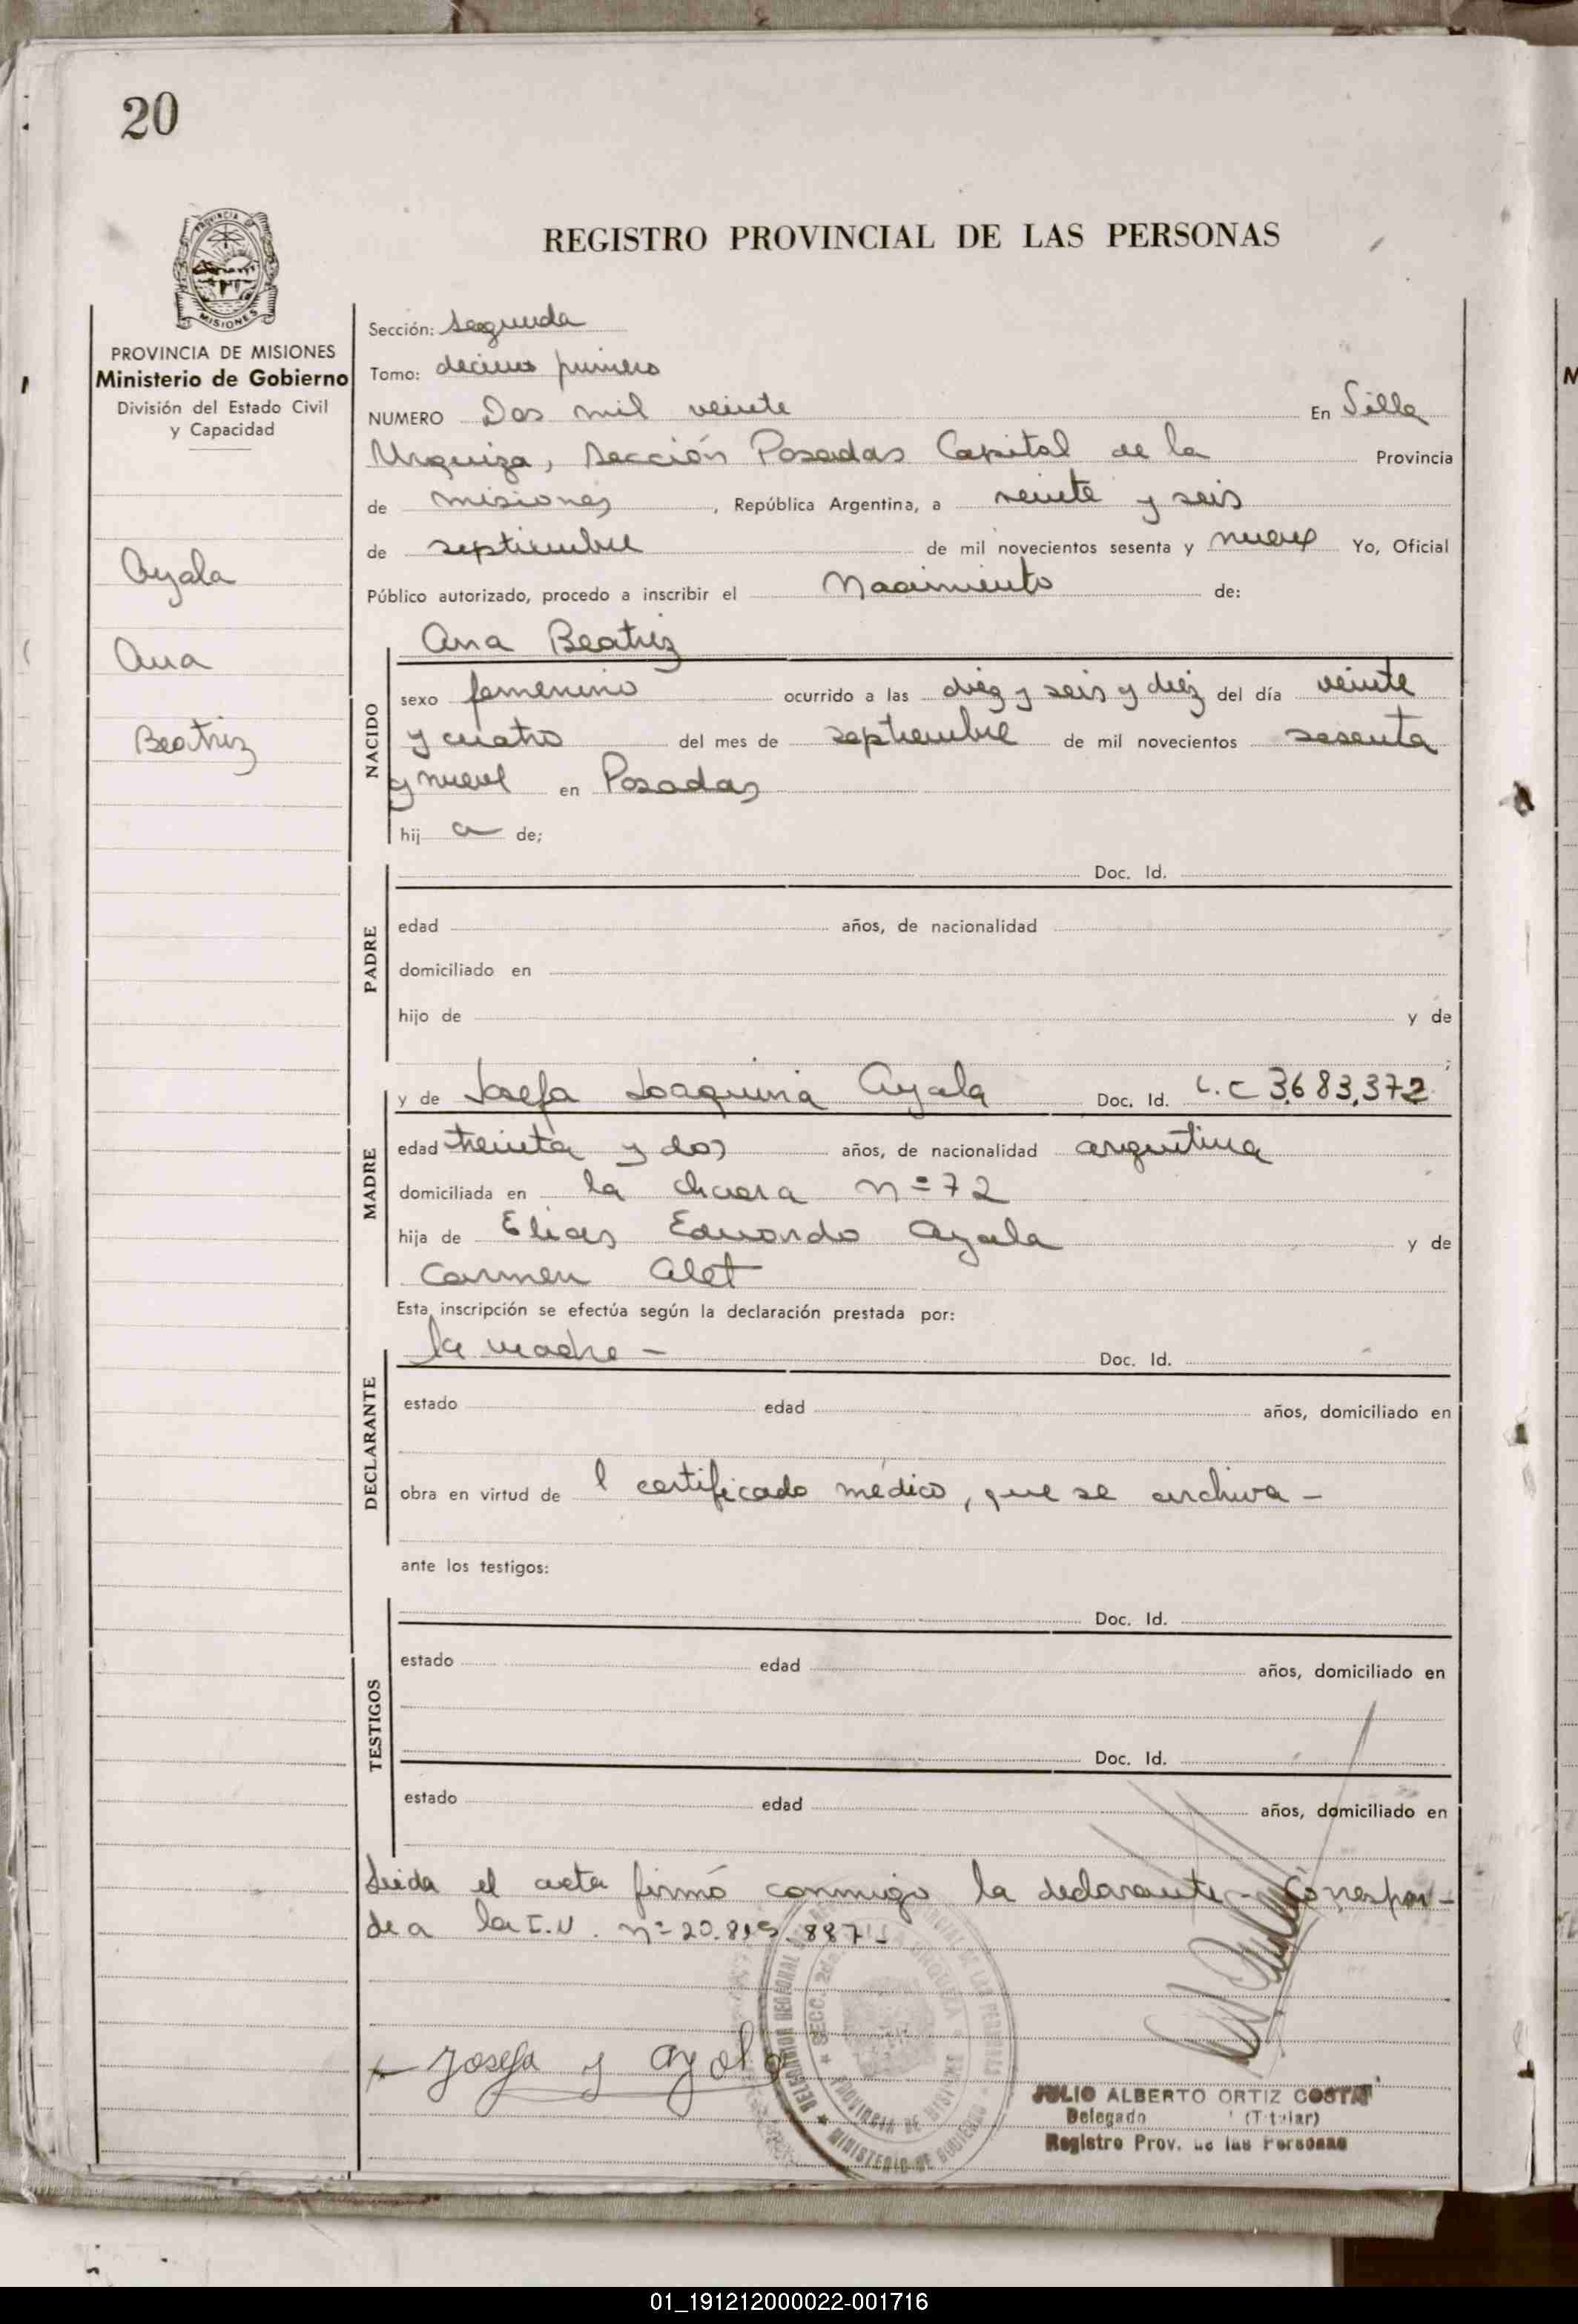 20
PROVINCIA DE MISIONES
REGISTRO PROVINCIAL DE LAS PERSONAS
PROVINCIA DE MISIONES
Ministerio de Gobierno
División del Estado Civil
y Capacidad
Ayala
Ana
Beatriz
Sección: segunda
Tomo: decimo primero
NUMERO Dos mil veinte En Villa
Urquiza, sección Posadas Capital de la Provincia
de misiones, República Argentina, a veinte y seis
de septiembre de mil novecientos sesenta y nueve Yo, Oficial
Público autorizado, procedo a inscribir el Nacimiento de:
NACIDO
Ana Beatriz
sexo femenino ocurrido a las diez y seis y diez del día veinte
y cuatro del mes de septiembre de mil novecientos sesenta
y nueve en Posadas
hij a de;
PADRE
Doc. Id.
edad años, de nacionalidad
domiciliado en
hijo de y de
;
MADRE
y de Josefa Joaquina Ayala Doc. Id. L.C 3.683.372
edad treinta y dos años, de nacionalidad argentina
domiciliada en la chacra nº 72
hija de Elias Eduardo Ayala y de
Carmen Alet
Esta inscripción se efectúa según la declaración prestada por:
DECLARANTE
la madre - Doc. Id.
estado edad años, domiciliado en
obra en virtud de l certificado médico, que se archiva -
ante los testigos:
TESTIGOS
Doc. Id.
estado edad años, domiciliado en
Doc. Id.
estado edad años, domiciliado en
Leida el acta firmó conmigo la declarante - Correspon-
de a la I.N. nº 20.819.887 -
Josefa J Ayala
SECC. 2da.
PROVINCIA DE MISIONES
MINISTERIO DE GOBIERNO
JULIO ALBERTO ORTIZ COSTA
Delegado (Titular)
Registro Prov. de las Personas
01_191212000022-001716